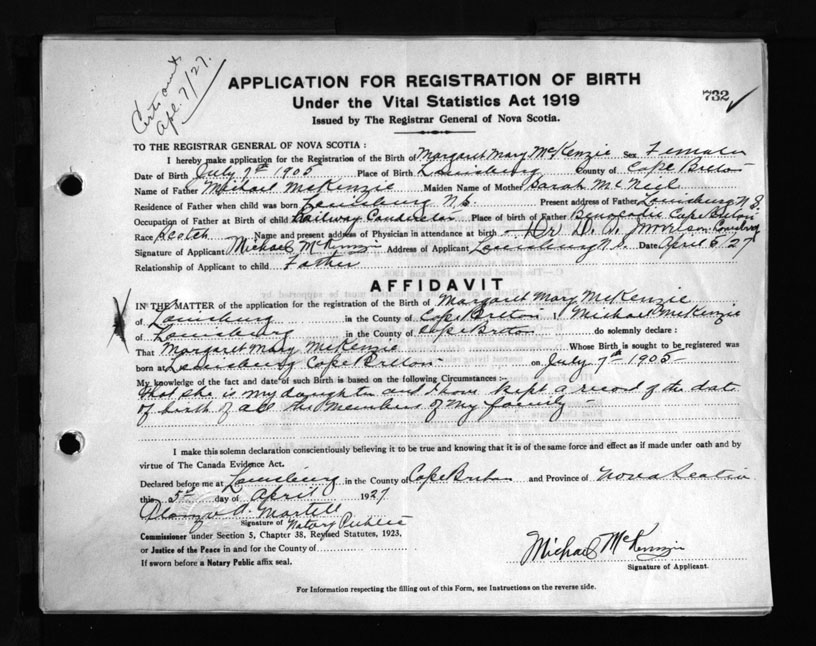 Apl. 7/27.
732
APPLICATION FOR REGISTRATION OF BIRTH
Under the Vital Statistics Act 1919
Issued by The Registrar General of Nova Scotia.
TO THE REGISTRAR GENERAL OF NOVA SCOTIA:
I hereby make application for the Registration of the Birth of Margaret Mary McKenzie Sex Female
Date of Birth July 7th 1905 Place of Birth Louisburg County of Cape Breton
Name of Father Michael McKenzie Maiden Name of Mother Sarah McNeil
Residence of Father when child was born Louisburg N.S. Present address of Father Louisburg N S
Occupation of Father at Birth of child Railway Conductor Place of birth of Father Benacadie Cape Breton
Race Scotch Name and present address of Physician in attendance at birth Dr D. A. Morrison Louisburg
Signature of Applicant Michael McKenzie Address of Applicant Louisburg N.S. Date April 6/27
Relationship of Applicant to child Father
AFFIDAVIT
IN THE MATTER of the application for the registration of the Birth of Margaret Mary McKenzie
of Louisburg in the County of Cape Breton I Michael McKenzie
of Louisburg in the County of Cape Breton do solemnly declare:
That Margaret Mary McKenzie Whose Birth is sought to be registered was
born at Louisburg Cape Breton on July 7th 1905
My knowledge of the fact and date of such Birth is based on the following Circumstances:-
that she is my daughter and I have kept a record of the date
of birth of all the members of my family
I make this solemn declaration conscientiously believing it to be true and knowing that it is of the same force and effect as if made under oath and by
virtue of The Canada Evidence Act.
Declared before me at Louisburg in the County of Cape Breton and Province of Nova Scotia
this 5th day of April 1927
A. Martell
Signature of Notary Public
Commissioner under Section 5, Chapter 38, Revised Statutes, 1923,
or Justice of the Peace in and for the County of
If sworn before a Notary Public affix seal.
Michael McKenzie
Signature of Applicant.
For Information respecting the filling out of this Form, see Instructions on the reverse side.